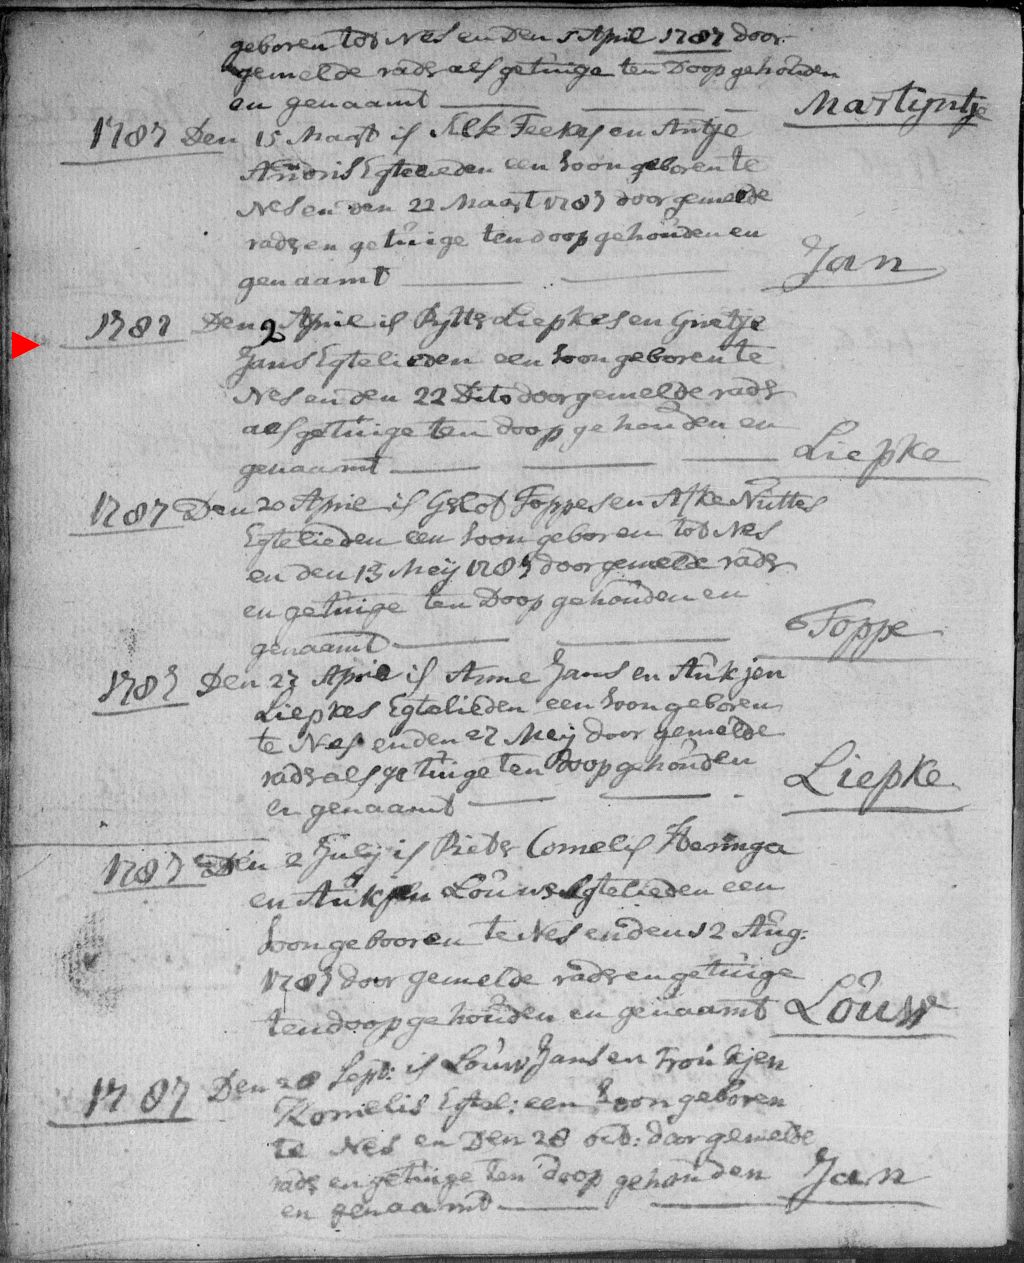 geboren tot Nes en Den 5 April 1787 door
gemelde vader als getuige ten Doop gehouden
en genaamt Martijntje
1787 Den 15 Maart is Feekes en Antje
Andris Egtelieden een soon geboren te
Nes en den 22 Maart 1787 door gemelde
vader en getuige ten doop gehouden en
genaamt Jan
1787 Den 2 April is Rytse Liepkes en Grietje
Jans Egtelieden een soon geboren te
Nes en den 22 Dito door gemelde vader
als getuige ten doop gehouden en
genaamt Liepke
1787 Den 20 April is Gelof Foppes en Afke Nuttes
Egtelieden een soon geboren tot Nes
en den 13 Meij 1787 door gemelde vader
en getuige ten Doop gehouden en
genaamt Foppe
1787 Den 27 April is Anne Jans en Aukjen
Liepkes Egtelieden een soon geboren
te Nes en den 27 Meij door gemelde
vader als getuige ten doop gehouden
en genaamt Liepke
1787 Den 2 Julij is Pieter Cornelis Heringa
en Aukjen Louws Egtelieden een
soon gebooren te Nes en den 12 Aug:
1787 door gemelde vader en getuige
ten doop gehouden en genaamt Louw
1787 Den 28 Sept: is Louw Jans en Troukjen
Kornelis Egtel: een soon geboren
te Nes en Den 28 oct: door gemelde
vader en getuige ten doop gehouden Jan
en genaamt